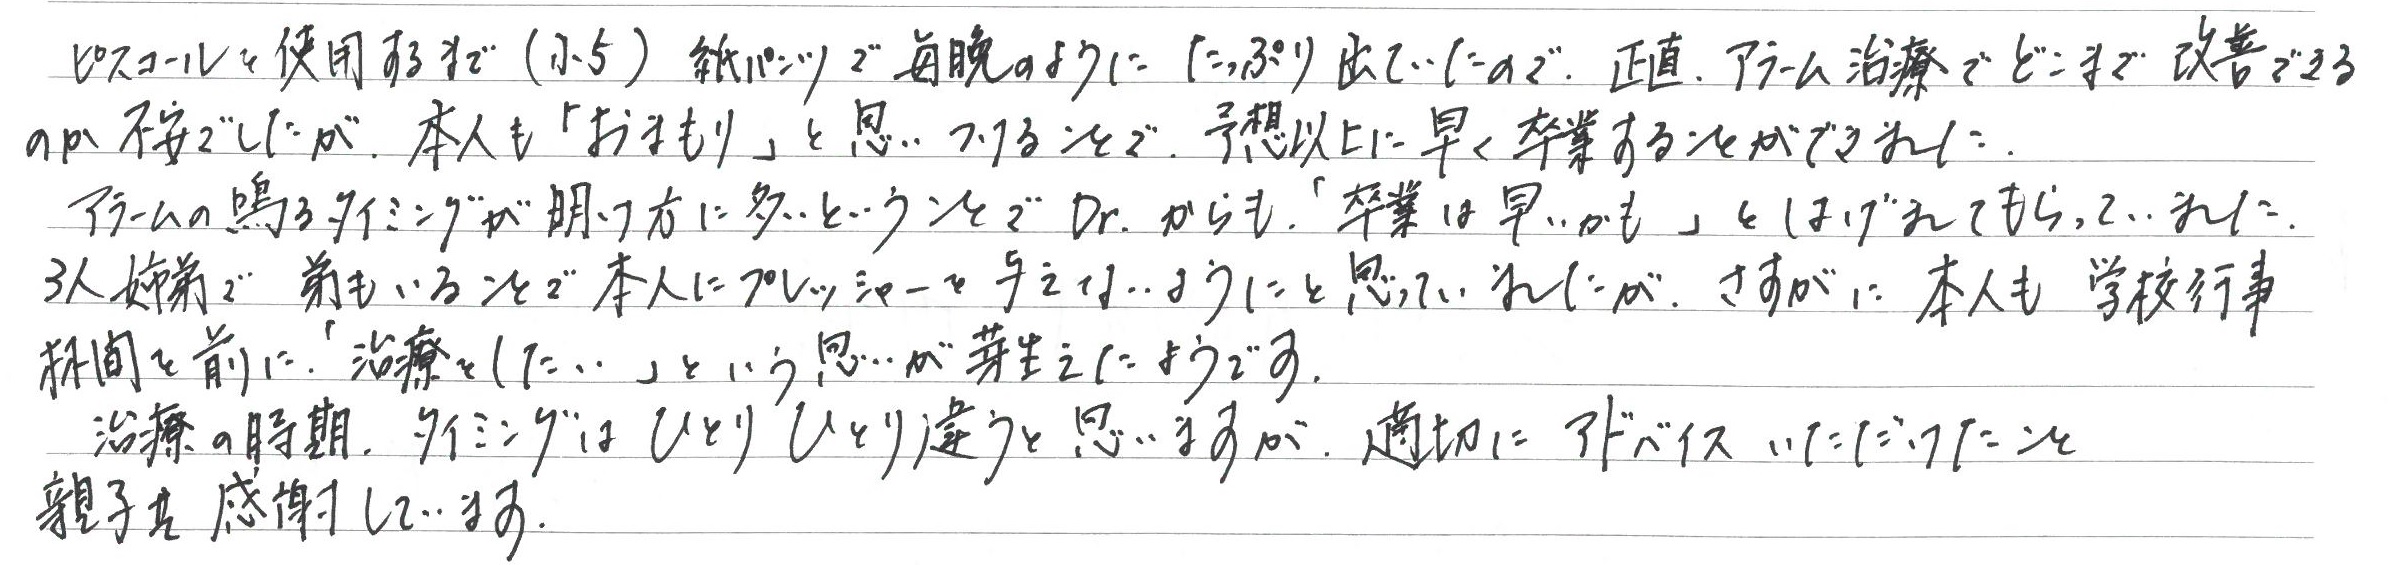 ピスコールを使用するまで(小5)紙パンツで毎晩のようにたっぷり出ていたので、正直、アラーム治療でどこまで改善できる
のか不安でしたが、本人も「おまもり」と思いつけることで、予想以上に早く卒業することができました。
アラームの鳴るタイミングが明け方に多いということでDr.からも、「卒業は早いかも」とはげましてもらっていました。
3人姉弟で弟もいることで本人にプレッシャーを与えないようにと思っていましたが、さすがに本人も学校行事
林間を前に、「治療をしたい」という思いが芽生えたようです。
治療の時期、タイミングはひとりひとり違うと思いますが、適切にアドバイスいただけたこと
親子共感謝しています。